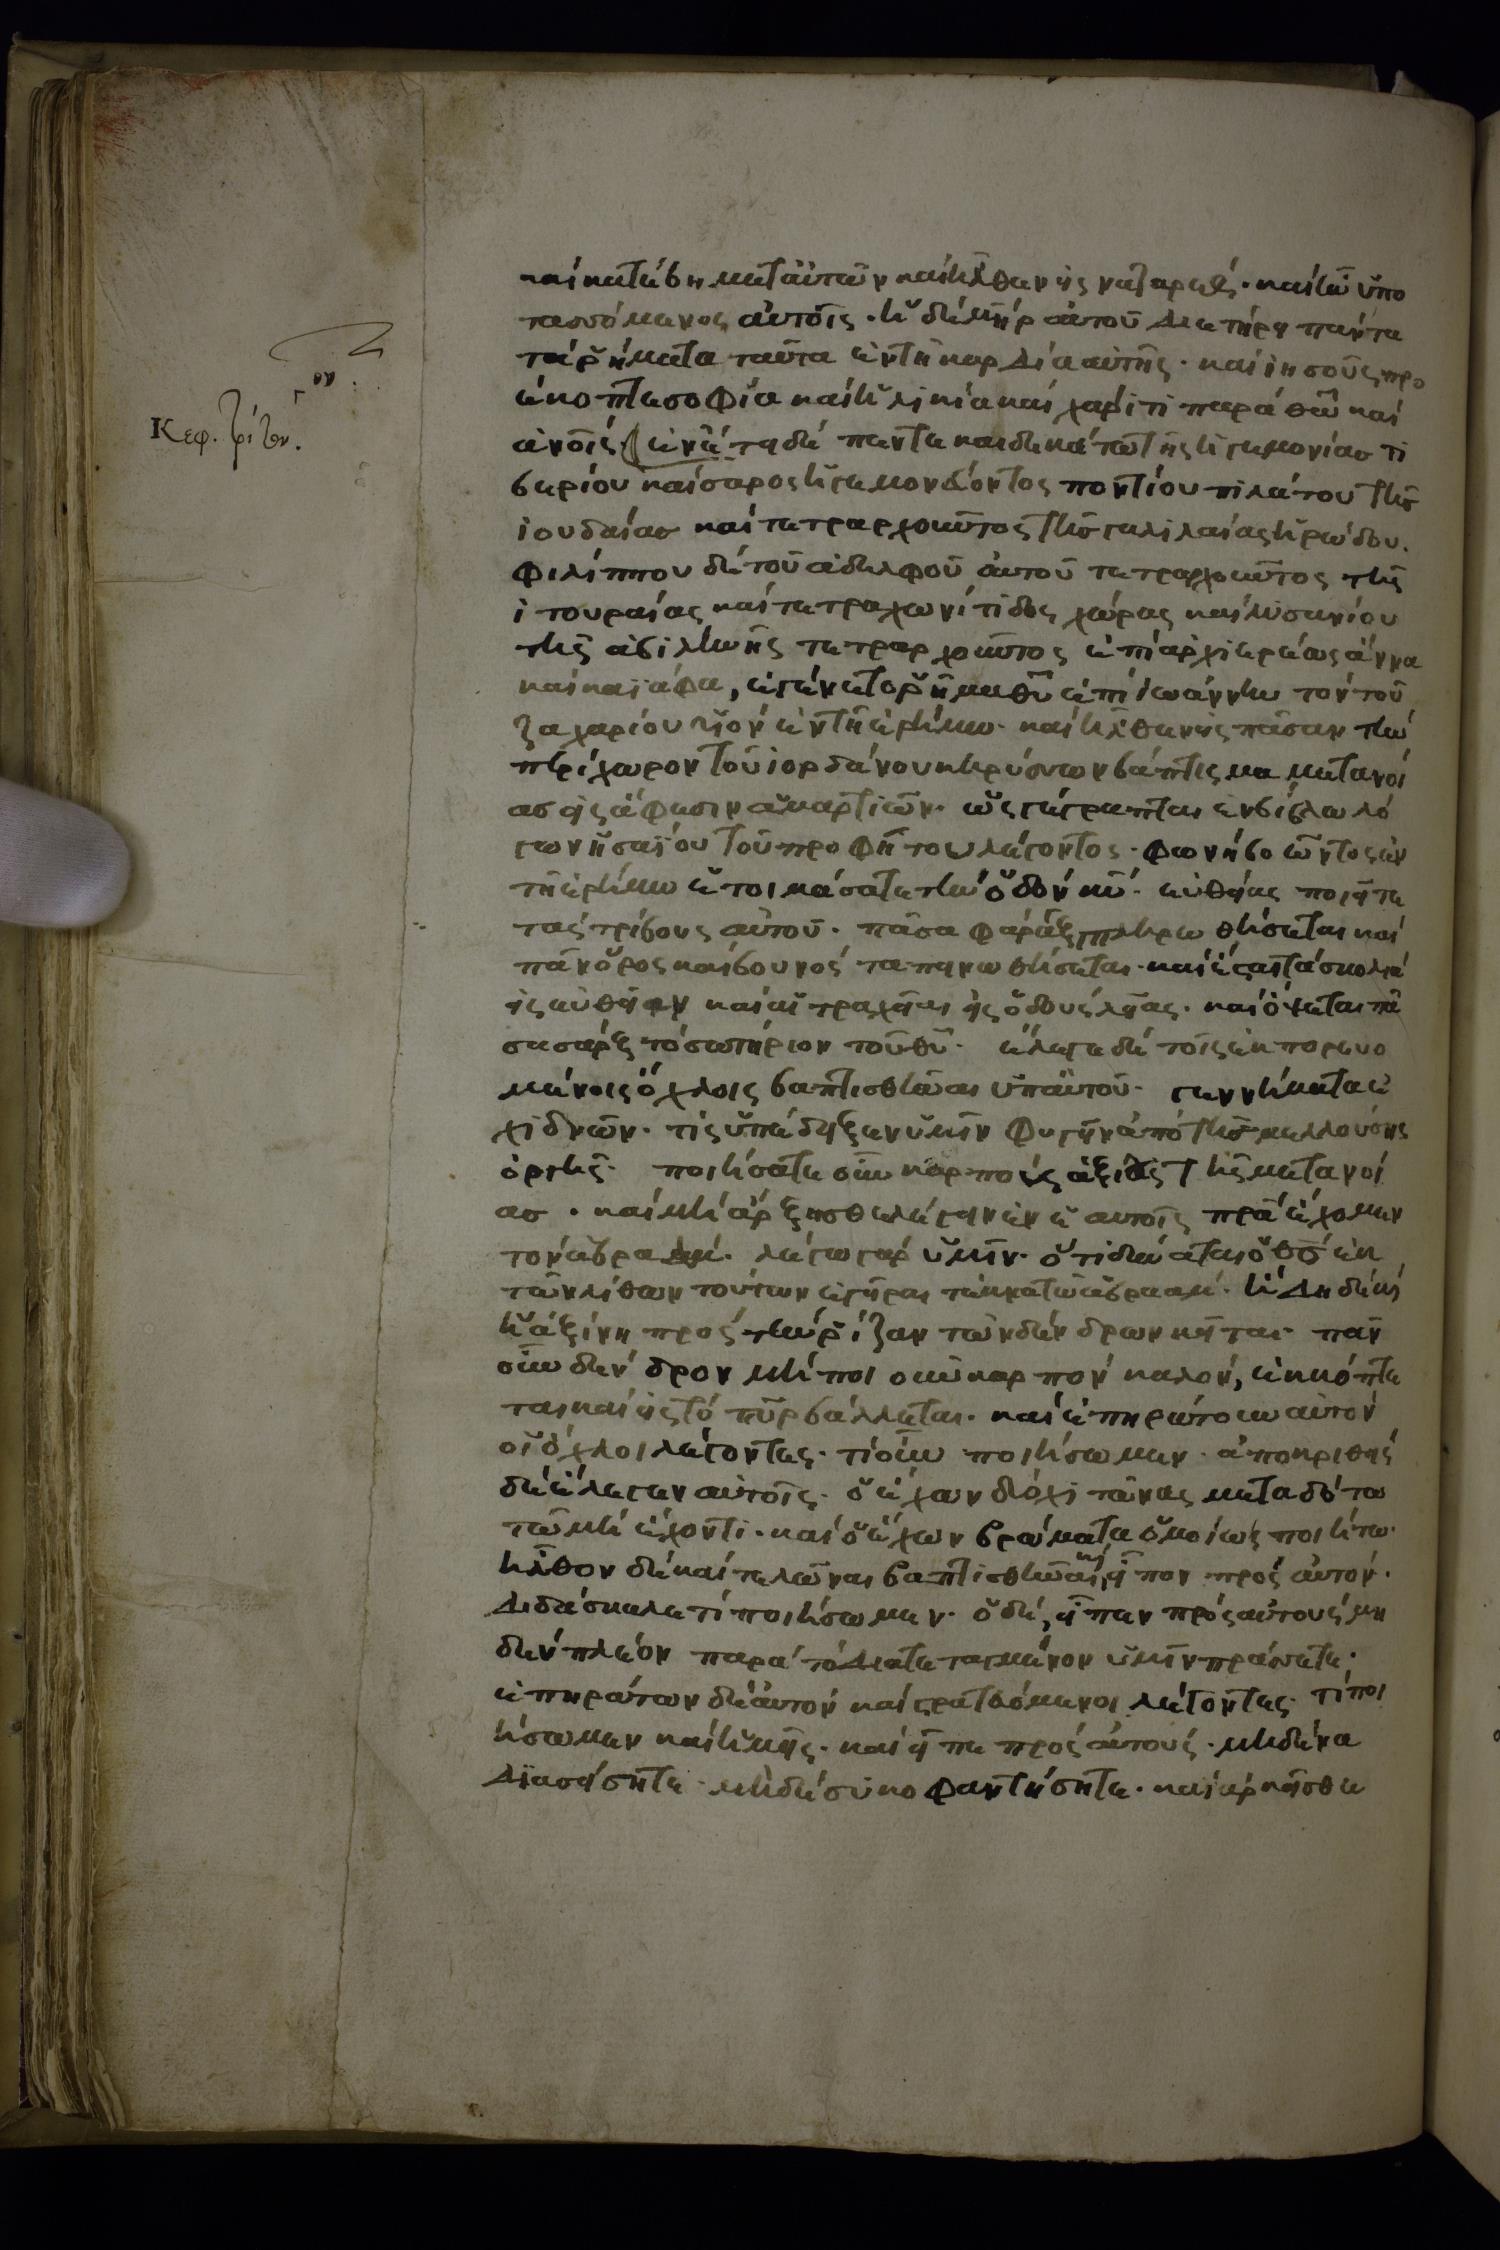 Κεφ. τρίτον.
γον.
καὶ κατέβη μετ' αὐτῶν καὶ ἦλθεν εἰς ναζαρέθ· καὶ ἦν ὑπο
τασσόμενος αὐτοῖς· ἡ δὲ μηρ αὐτοῦ διετήρει πάντα
τὰ ῥήματα ταῦτα ἐν τῇ καρδία αὐτῆς· καὶ ἰησοῦς προ
έκοπτε σοφία καὶ ἡλικία καὶ χάριτι παρὰ θῶ καὶ
ἀνοις· ἐν ἔτει δὲ πεντεκαιδεκάτω τῆς ἡγεμονίας τι
βερίου καίσαρος ἡγεμονεύοντος ποντίου πιλάτου τῆς
ἰουδαίας καὶ τετραρχοῦντος τῆς γαλιλαίας ἡρώδου.
φιλίππου δὲ τοῦ ἀδελφοῦ αὐτοῦ τετραρχοῦντος τῆς
ἰτουραίας καὶ τετραχωνίτιδος χώρας καὶ λυσανίου
τῆς ἀβιληνῆς τετραρχοῦντος ἐπὶ ἀρχιερέως ἄννα
καὶ καϊάφα, ἐγένετο ῥῆμα θῦ ἐπὶ ἰωάννην τὸν τοῦ
ζαχαρίου υἱὸν ἐν τῇ ἐρήμω· καὶ ἦλθεν εἰς πᾶσαν τὴν
περίχωρον τοῦ ἰορδάνου κηρύσσων βάπτισμα μετανοί
ας εἰς ἄφεσιν ἁμαρτιῶν· ὡς γέγραπται ἐν βίβλω λό
γων ἡσαΐου τοῦ προφήτου λέγοντος· φωνὴ βοῶντος ἐν
τῇ ἐρήμω ἑτοιμάσατε τὴν ὁδὸν κῦ· εὐθείας ποιεῖτε
τὰς τρίβους αὐτοῦ· πᾶσα φάραξ πληρωθήσεται καὶ
πᾶν ὄρος καὶ βουνὸς ταπεινωθήσεται· καὶ ἔσται τὰ σκολιὰ
εἰς εὐθεῖαν καὶ αἱ τραχεῖαι εἰς ὁδοὺς λείας· καὶ ὄψεται πᾶ
σα σάρξ τὸ σωτήριον τοῦ θῦ· ἔλεγε δὲ τοῖς ἐκπορευο
μένοις ὄχλοις βαπτισθῆναι ὑπ' αὐτοῦ· γεννήματα ἐ
χιδνῶν· τίς ὑπέδειξεν ὑμῖν φυγεῖν ἀπὸ τῆς μελλούσης
ὀργῆς· ποιήσατε οὖν καρποὺς ἀξίους τῆς μετανοί
ας· καὶ μὴ ἄρξησθε λέγειν ἐν ἑαυτοῖς πρα ἔχομεν
τὸν ἀβραάμ· λέγω γὰρ ὑμῖν· ὅτι δύναται ὁ θς ἐκ
τῶν λίθων τούτων ἐγεῖραι τέκνα τῶ ἀβραάμ· ἤδη δὲ καὶ
ἡ ἀξίνη πρὸς τὴν ῥίζαν τῶν δένδρων κεῖται· πᾶν
οὖν δένδρον μὴ ποιοῦν καρπὸν καλόν, ἐκκόπτε
ται καὶ εἰς τὸ πῦρ βάλλεται· καὶ ἐπηρώτουν αὐτὸν
οἱ ὄχλοι λέγοντες· τί οὖν ποιήσωμεν· ἀποκριθεὶς
δὲ ἔλεγεν αὐτοῖς· ὁ ἔχων δύο χιτῶνας μεταδότω
τῶ μὴ ἔχοντι· καὶ ὁ ἔχων βρώματα ὁμοίως ποιήτω·
ἦλθον δὲ καὶ τελῶναι βαπτισθῆναι καὶ εἶπον πρὸς αὐτόν·
διδάσκαλε τί ποιήσωμεν· ὁ δὲ, εἶπεν πρὸς αὐτοὺς μη
δὲν πλέον παρὰ τὸ διατεταγμένον ὑμῖν πράσσετε·
ἐπηρώτων δὲ αὐτὸν καὶ στρατευόμενοι λέγοντες· τί ποι
ήσωμεν καὶ ἡμεῖς· καὶ εἶπε πρὸς αὐτούς· μηδένα
διασείσητε· μηδὲ συκοφαντήσητε· καὶ ἀρκεῖσθε